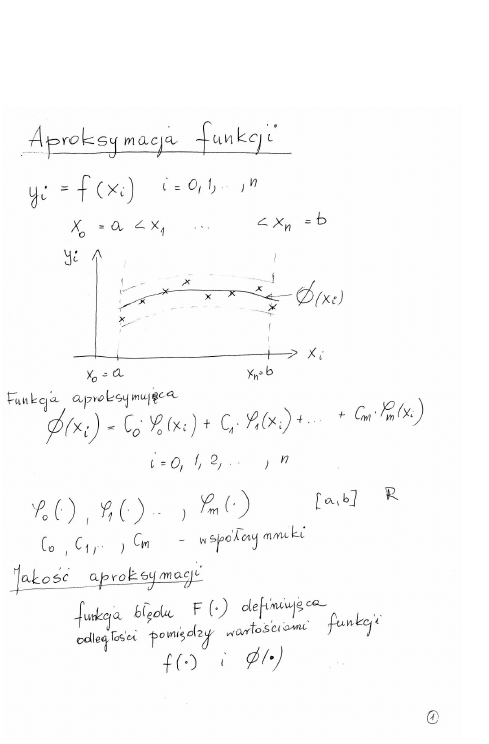 Aproksymacja funkcji
yi = f(xi) i = 0, 1, .. , n
x0 = a < x1 ... < xn = b
yi
ϕ(xi)
xi
x0 = a xn = b
Funkcja aproksymująca
ϕ(xi) = C0·φ0(xi) + C1·φ1(xi) + ... + Cm·φm(xi)
i = 0, 1, 2, .. , n
φ0(·), φ1(·) .. , φm(·) [a,b] R
C0, C1, .. , Cm - współczynniki
Jakość aproksymacji
funkcja błędu F(·) definiująca
odległości pomiędzy wartościami funkcji
f(·) i ϕ(·)
1